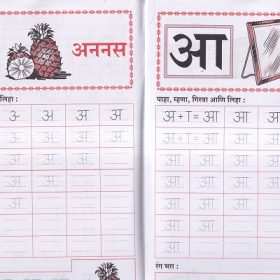 अननस
लिहा :
अ अ अ अ
अ अ अ अ
अ अ अ
अ अ
अ
आ
पाहा, म्हणा, गिरवा आणि लिहा :
अ+ा= आ आ आ
अ+ा= आ आ आ
आ आ आ आ
आ आ आ
आ आ
आ आ
आ
रंग भरा :